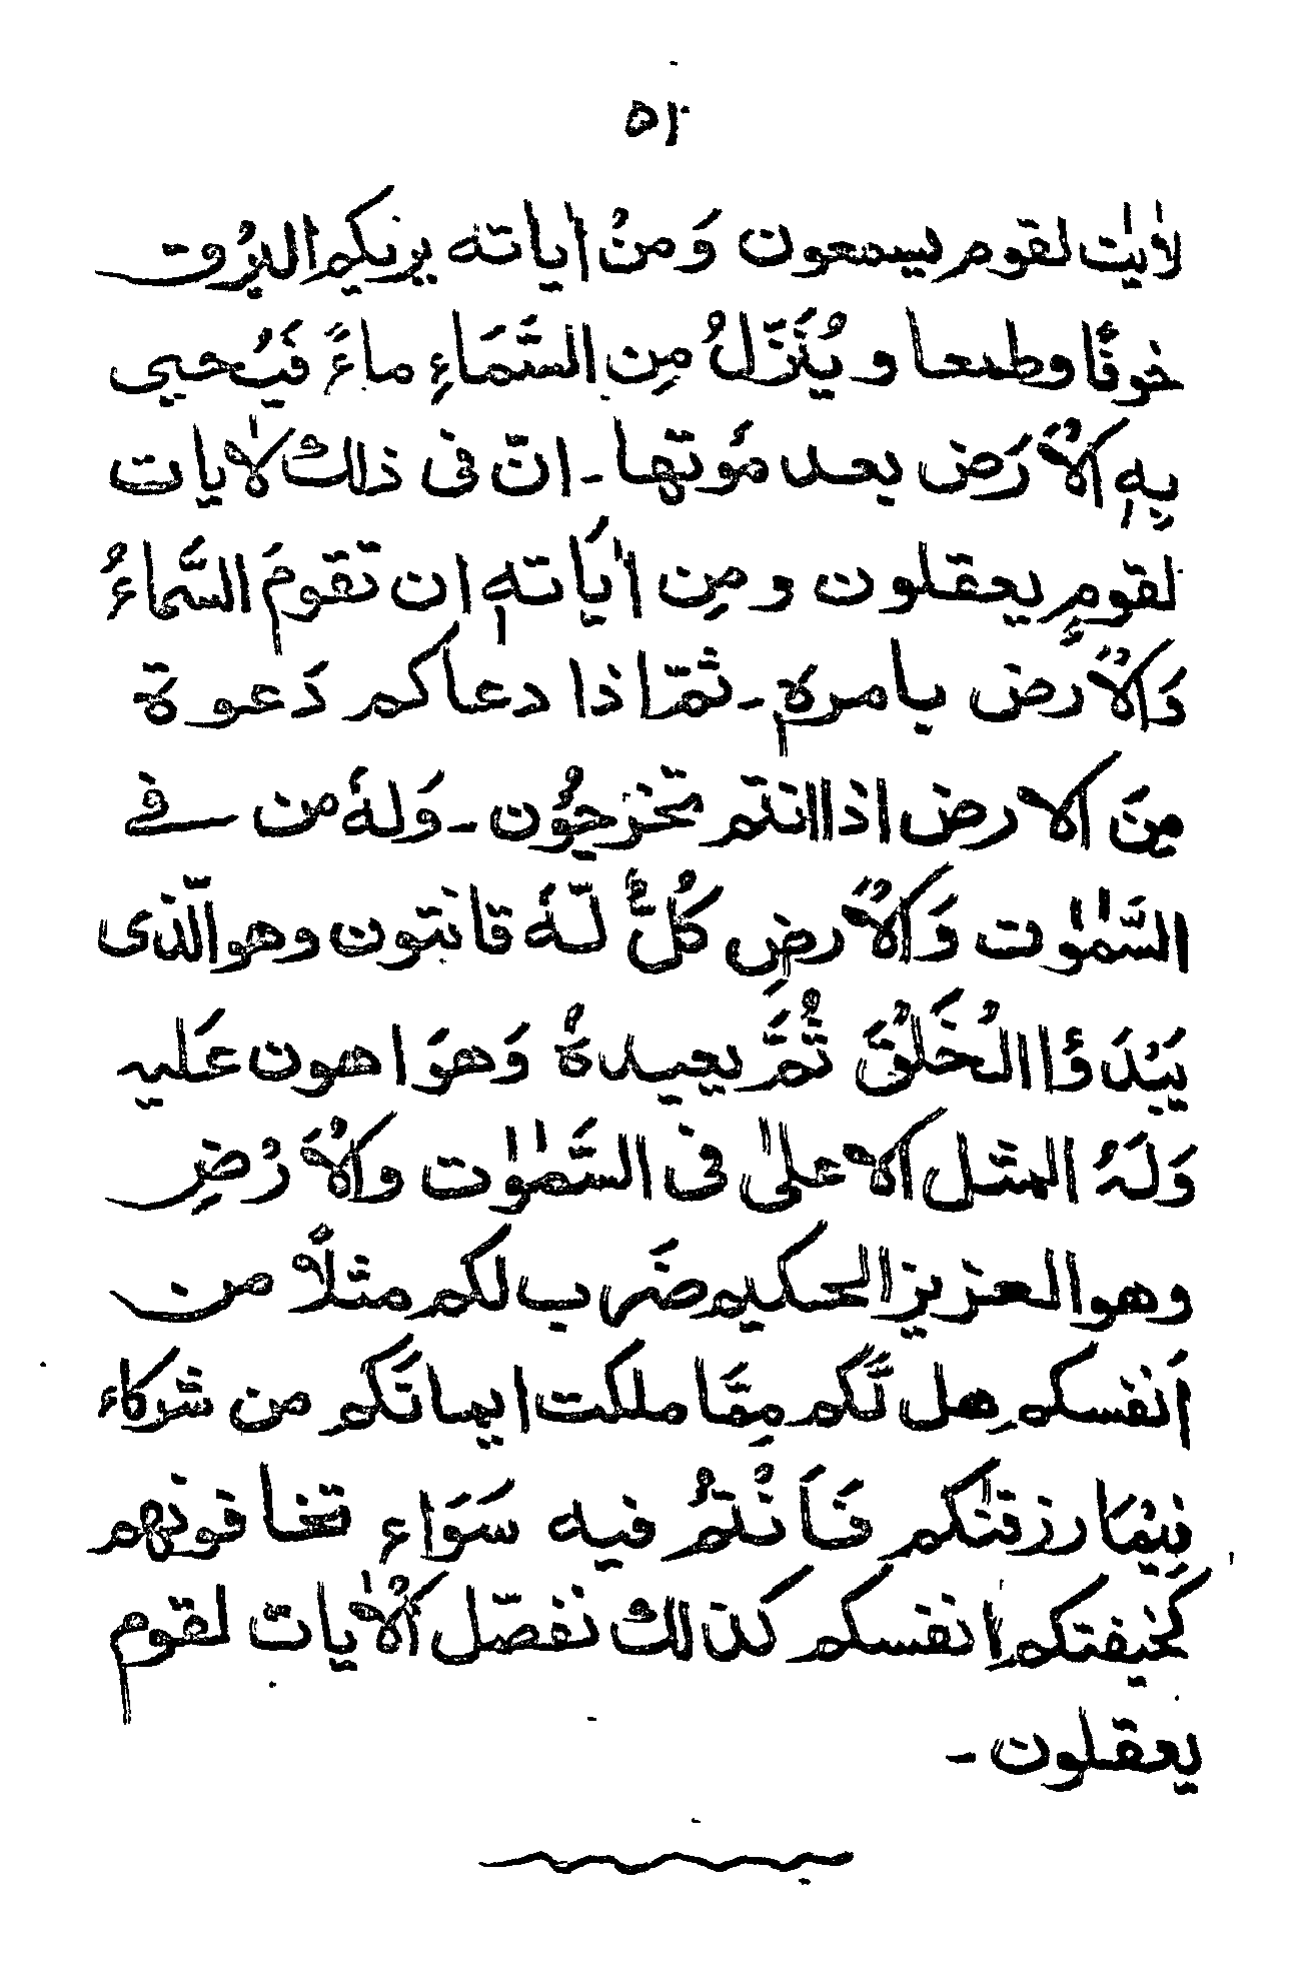 ٥١
لأيٰت لقوم يسمعون وَ منْ اٰياته يريكم البرْوت
خوفًا وطمعا و يُنَزّلُ مِن السَّمَاءِ ماءً فَيُحيى
بِهٖ الْاَرَض بعد مَوتها - انّ فى ذلك لاٰيات
لقومٍ يعقلون ومِن اٰيَاتهٖ ان تقومَ السَّماءُ
وَالْاَرض بامرهٖ - ثمّ اذا دعاكم دَعوة
مِنَ الارض اذا انتم تخرجُون - وَلهُ من في
السَّمٰوٰت وَالْاَرضِ كُلٌّ لّهُ قانتون وهو الّذى
يَبْدَؤا الْخَلْقَ ثُمَّ يعيدهُ وَهوَ اهون عَليه
وَلَهُ المثل الاعلىٰ فى السَّمٰوٰت والْاَرْضِ
وهو العزيز الحكيم ضَرب لكم مثلاً من
اَنفسكم هل لَّكم مِمَّا ملكت ايمانَكم من شركاء
فِيْمَا رزقنٰكم فَاَنْتمُ فيه سَوَاء تخافونهم
كخيفتكم انفسكم كذالك نفصّل الْاٰيات لقوم
يعقلون -